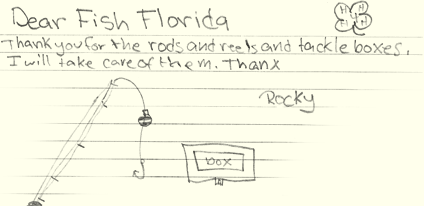 Dear Fish Florida
H H H H
Thank you for the rods and reels and tackle boxes.
I will take care of them. Thanx
Rocky
box